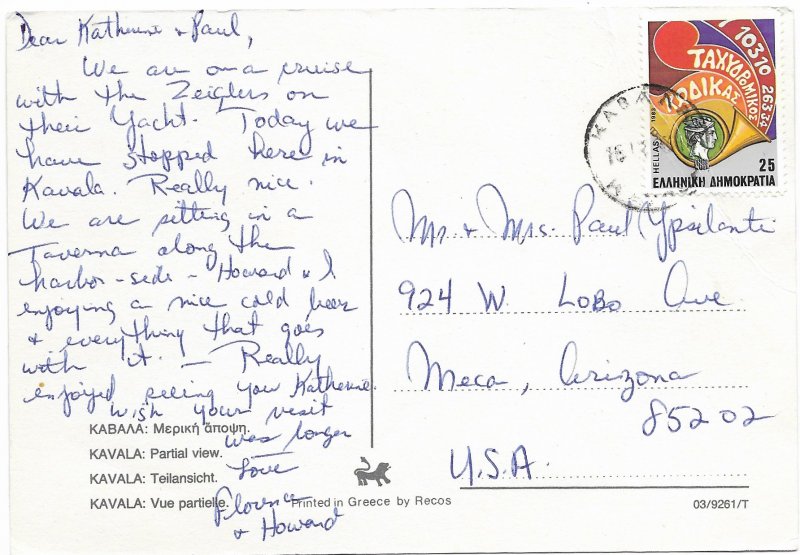 Dear Katherine & Paul,
We are on a cruise
with the Zeiglers on
their Yacht. Today we
have stopped here in
Kavala. Really nice.
We are sitting in a
Taverna along the
harbor-side - Howard & I
enjoying a nice cold beer
& everything that goes
with it. — Really
enjoyed seeing you Katherine.
Wish your visit
was longer
Love
Florence
& Howard
ΚΑΒΑΛΑ: Μερική ἄποψη.
KAVALA: Partial view.
KAVALA: Teilansicht.
KAVALA: Vue partielle.
Printed in Greece by Recos
03/9261/T
10310
ΤΑΧΥΔΡΟΜΙΚΟΣ
ΚΩΔΙΚΑΣ
26334
HELLAS
1983
25
ΕΛΛΗΝΙΚΗ ΔΗΜΟΚΡΑΤΙΑ
Mr & Mrs. Paul Ypsilanti
924 W. Lobo Ave
Meca, Arizona
85202
U.S.A.